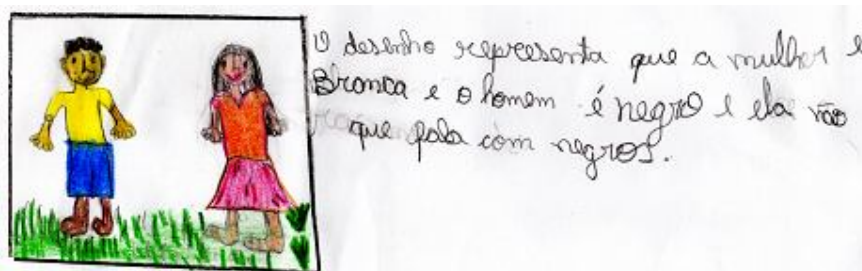 O desenho representa que a mulher e
Branca e o homem é negro e ela não
que fala com negros.